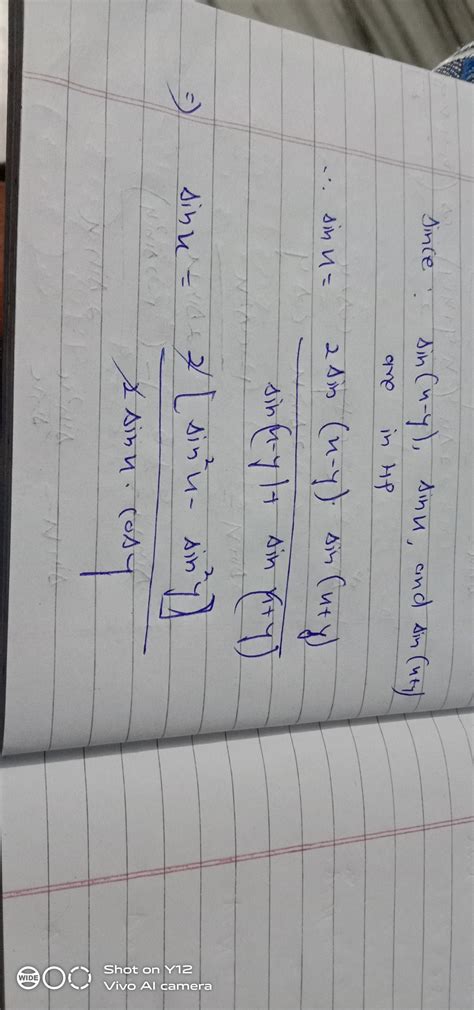 since : sin(x-y), sinx, and sin(x+y)
are in HP
∴ sinx = 2sin (x-y). sin(x+y)
sin(x-y)+ sin (x+y)
=) sinx = 2 [sin²x - sin²y]
2 sinx. cosy
WIDE
Shot on Y12
Vivo AI camera